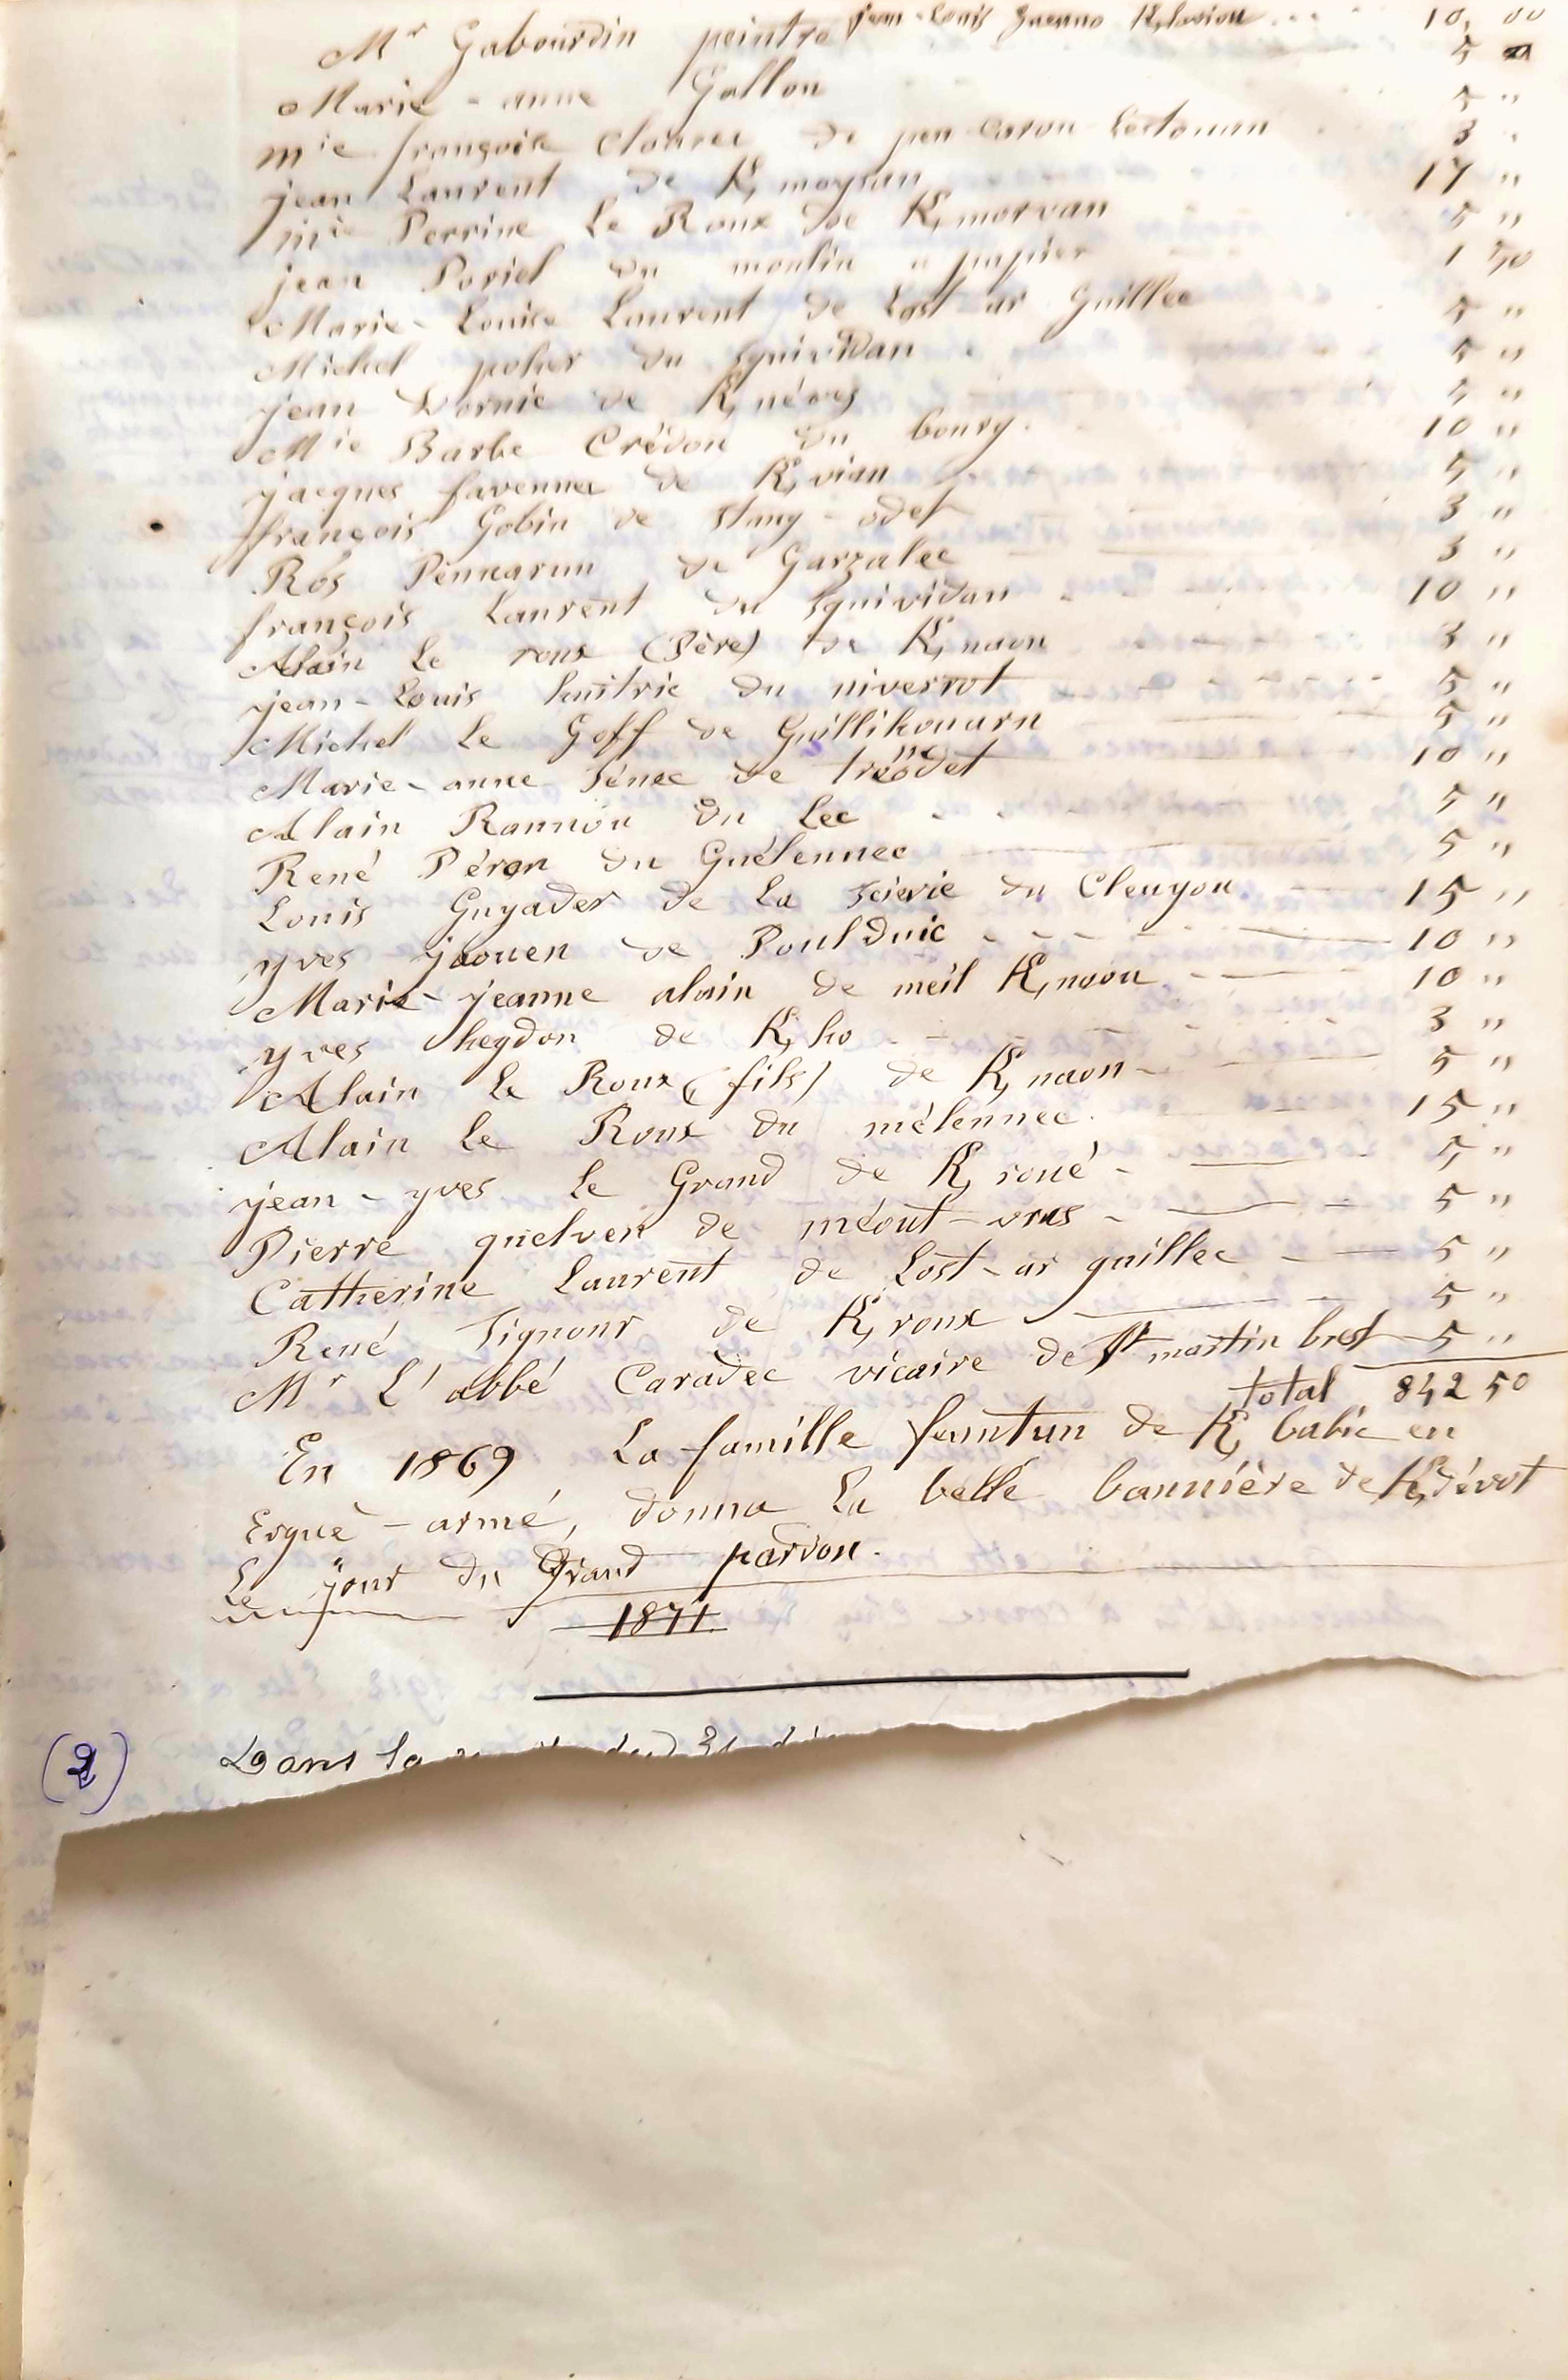 jean-Louis K, laviou ... 10, 00
Mr Gabourdin peintre 5
Marie-anne Gallou 5 "
mie françoise de pen-carou Lestonan 3 "
jean Laurent de K, moysan 17 "
mie Perrine Le Roux de K, morvan 5 "
jean Poriel du moulin a papier 1 50
Marie-Louise Laurent de Lost-ar Guillec 5 "
Michel poher du squividan 5 "
jean de K, névez 5 "
Mie Barbe Crédou du bourg. 10 "
jacques favennec de K, vian 5 "
françois Gobin de stang-odet 3 "
Ros Pennarun de Garzalec 3 "
françois Laurent du squividan 10 "
Alain Le roux (Père) de K, naon 3 "
jean-Louis du niverrot 5 "
Michel Le Goff de Guillikouarn 5 "
Marie-anne Sénec de tréodet 10 "
Alain Rannou du Lec 5 "
René Péron du Guélennec 5 "
Louis Guyader de La scierie du Cleuyou 15 "
yves jaouen de Poulduic 10 "
Marie-jeanne alain de meil K, naon 10 "
yves heydon de K, ho 3 "
Alain Le Roux (fils) de K, naon 5 "
Alain Le Roux du mélennec 15 "
jean-yves Le Grand de K, roué 5 "
Pierre quelven de méout-vras 5 "
Catherine Laurent de Lost-ar guillec 5 "
René Signour de K, roux 5 "
Mr L'abbé Caradec vicaire de St martin brest 5 "
total 842 50
En 1869 La famille feuntun de K, babic en
Ergué-armé, donna La belle bannière de K, dévot
Le jour du Grand pardon.
1871.
(2) Dans la